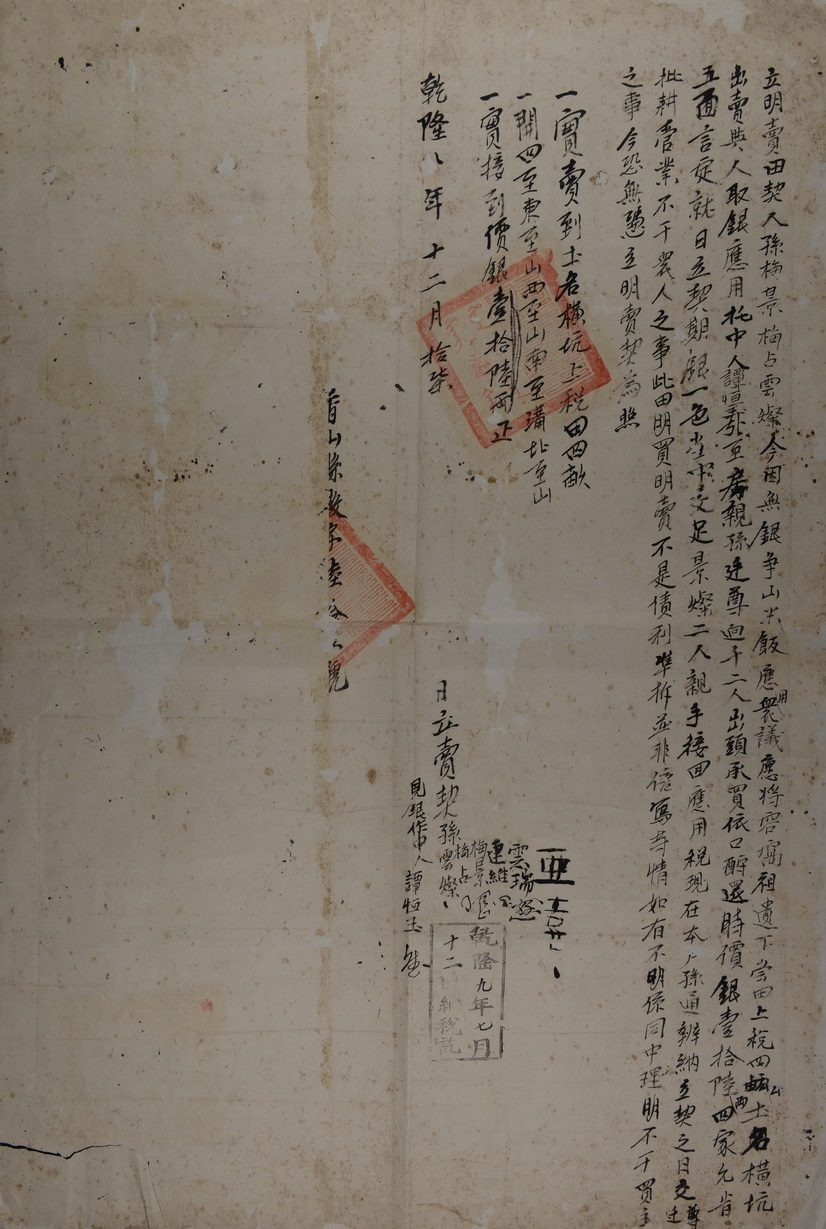 立明賣田契人孫梅景梅占雲燦今因無銀爭山米飯應用衆議應將容寓祖遺下嘗田上稅四畝山土名橫坑
出賣與人取銀應用托中人譚恒玉引至房親孫廷尊向千二人出頭承買依口酧還時價銀壹拾陸兩四家允肯
五面言定就日立契期銀一色當中交足景燦二人親手接回應用稅現在本戶孫通辦納立契之日交尊
批耕營業不干衆人之事此田明買明賣不是債利準折並非僞寫等情如有不明係同中理明不干買主
之事今恐無憑立明賣契為照
一實賣到土名橫坑上稅田四畝
一開四至東至山西至山南至溝北至山
一實接到價銀壹拾陸兩正
乾隆八年十二月拾柒
日立賣契孫雲燦
梅占
梅景
連維
雲瑞
亞
見銀作中人譚恒玉
香山縣 字陸 號
乾隆九年七月
十二日納稅訖